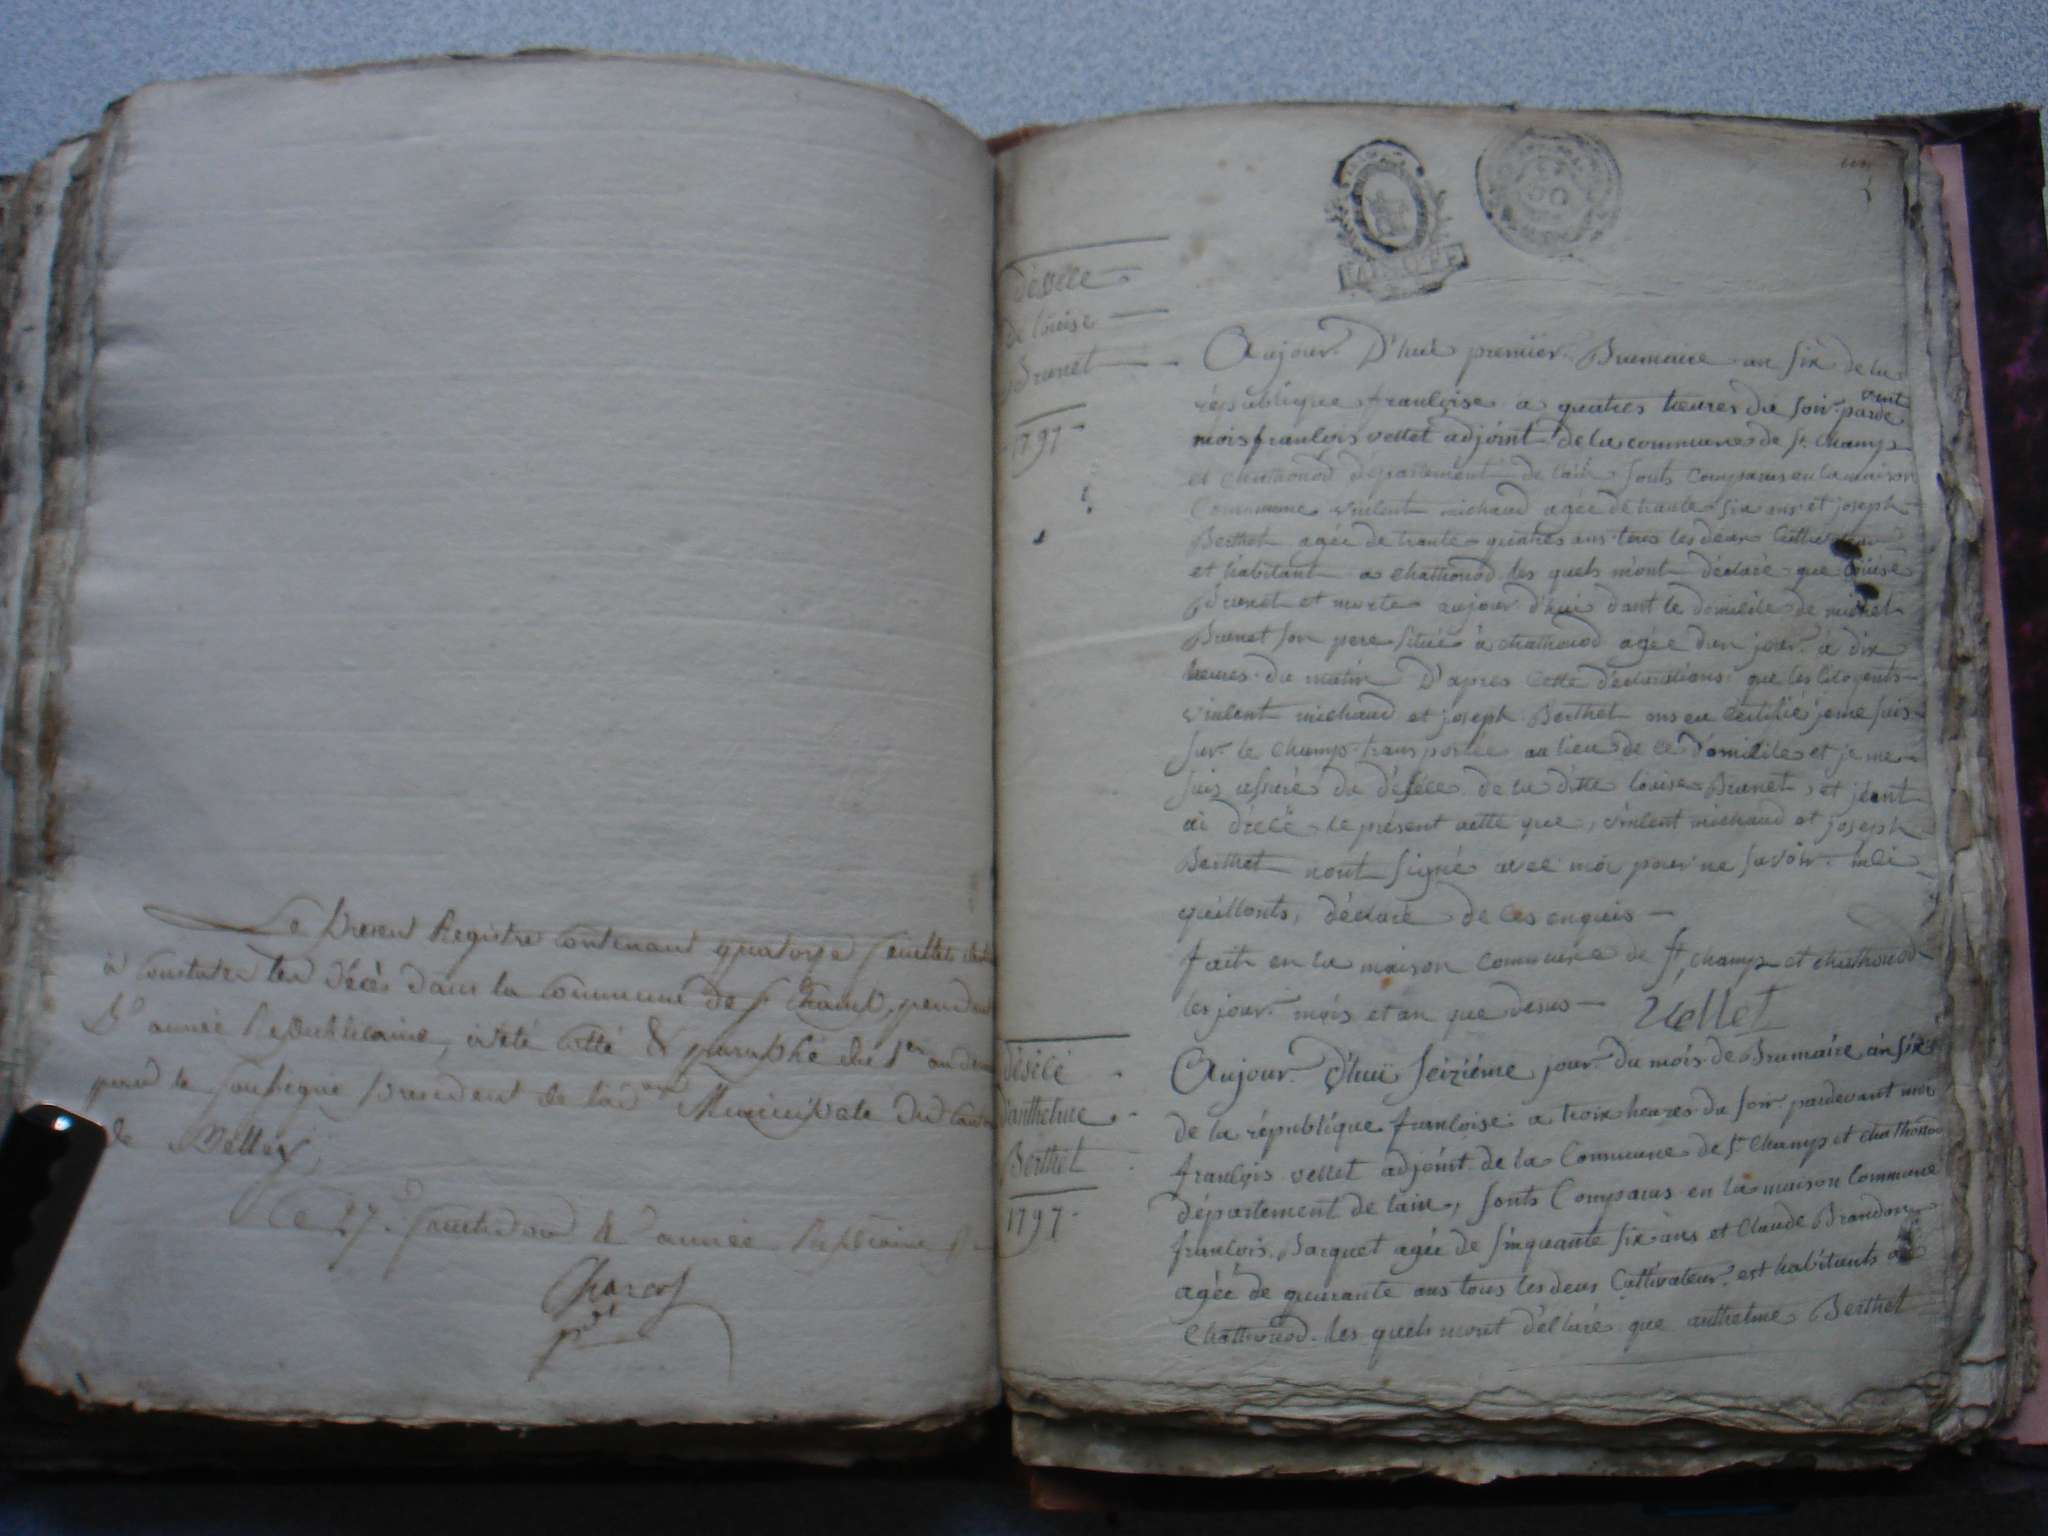 Le présent Registre contenant quatorze feuillets
à constater les Décès dans la commune de St Champ, pendant
année Republicaine, a été cotté & paraphé du 1er au
par le soussigné président de l'adon Municipale du Canton
de Belley,
Ce 27 4e année
Charcot
pdt
déssée
de louise
Brunet
1797
MINUTE
Aujour D'hui premier Brumaire an six de la
république françoise a quatres heures du soir parde vent
mois françois vellet adjoint de la commune de St Champ
et chathonod département de lain sonts Comparus en la maison
Commune vinlent michaud agée de trante six ans et joseph
Berthet agée de trante quatres ans tous les deux
et habitant a chathonod les quels mont déclaré que louise
Brunet et morte aujour d'hui dant le domicile de michel
Brunet son pere situé à chathonod agée d'un jour à dix
heures du matin D'apres cette déclarations que les Citoyents
vinlent michaud et joseph Berthet ms en certifié je me suis
sur le champ transportée au lieu de ce domicile et je me
suis assuré du déssée de la ditte louise Brunet, et jeant
ai dressé le présent acte que, vinlent michaud et joseph
Berthet nont signé avec moi pour ne savoir
quillonts, déclaré de ces enquis
fait en la maison commune de St champ et chathonod
les jour mois et an que desus vellet
désècé
d'anthelme
Berthet
1797
Aujour d'hui seiziéme jour du mois de Brumaire an six
de la république françoise a troix heures du soir pardevant moi
françois vellet adjoint de la Commune de St Champ et chathonod
département de lain, sonts Comparus en la maison Commune
françois Barquet agée de sinquante six ans et Claude Brandon
agée de quarante ans tous les deus Cultivateur est habitants a
Chathonod les quels mont déclaré que anthelme Berthet